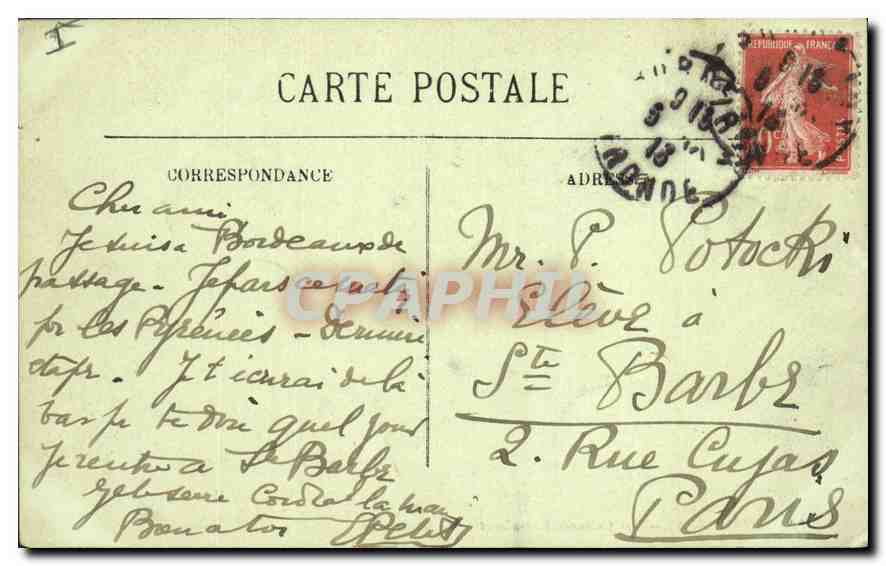 I
CARTE POSTALE
REPUBLIQUE FRANÇAISE
CORRESPONDANCE
ADRESSE
Cher ami
Je suis a Bordeaux de
passage - Je pars ce matin
pr les Pyrénées - dernière
étape. Je t'écrirai de là
bas pr te dire quel jour
je rentre a Ste Barbe
Je te serre la main
Mr. P. Potocki
Elève à
Ste Barbe
2. Rue Cujas
Paris
CPAPHIL